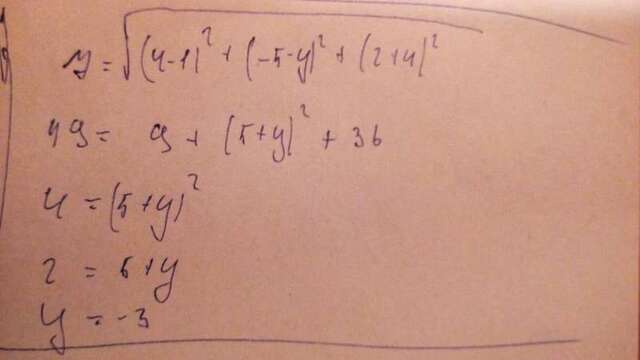 7 = √(4-1)² + (-5-y)² + (2+4)²
49 = 9 + (5+y)² + 36
4 = (5+y)²
2 = 5+y
y = -3